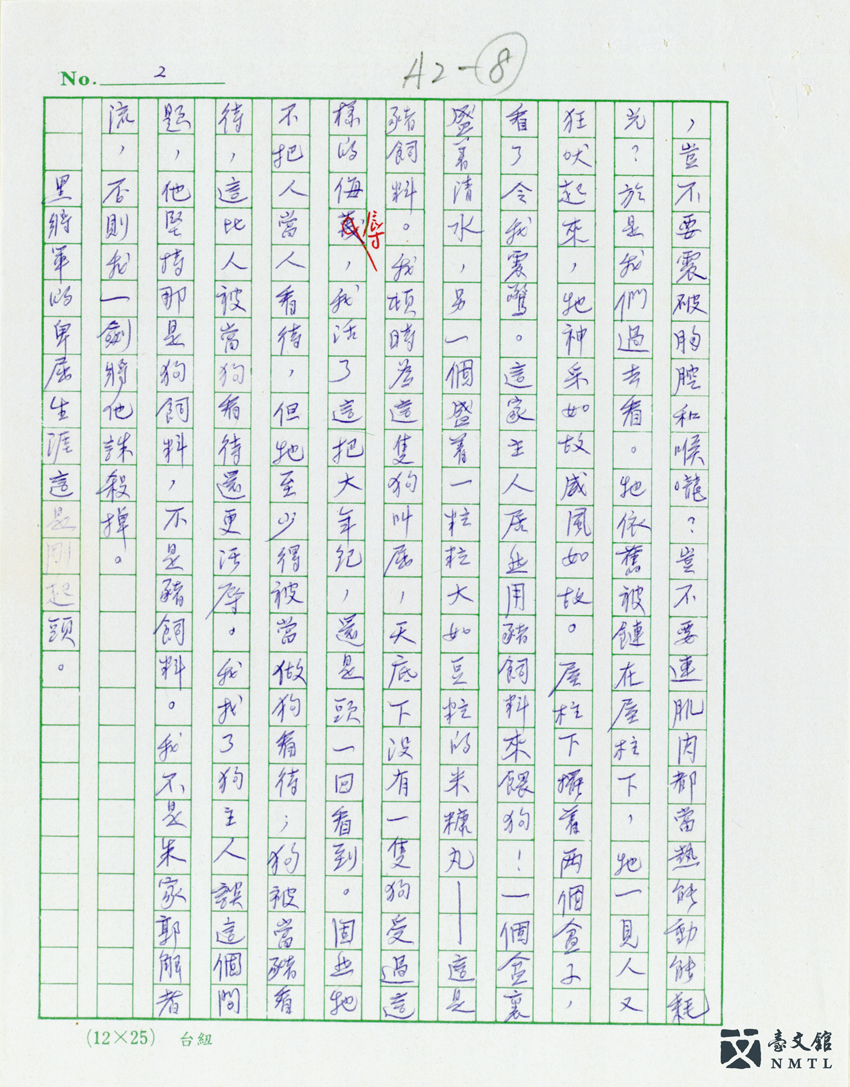 No. 2
A2-⑧
，豈不要震破胸腔和喉嚨？豈不要連肌肉都當熱能動能耗
光？於是我們過去看。牠依舊被鏈在屋柱下，牠一見人又
狂吠起來，牠神采如故威風如故。屋柱下擺着两個盒子，
看了令我震驚。這家主人居然用豬飼料來餵狗！一個盒裏
盛着清水，另一個盛着一粒粒大如豆粒的米糠丸——這是
豬飼料。我頓時为這隻狗叫屈，天底下沒有一隻狗受過這
樣的侮辱，我活了這把大年紀，還是頭一回看到。固然牠
不把人當人看待，但牠至少得被當做狗看待；狗被當豬看
待，這比人被當狗看待還更活辱。我找了狗主人談這個問
題，他堅持那是狗飼料，不是豬飼料。我不是朱家郭解者
流，否則我一劍將他誅殺掉。
黑將軍的卑屈生涯這是剛起頭。
(12×25) 台紐
臺文館
NMTL